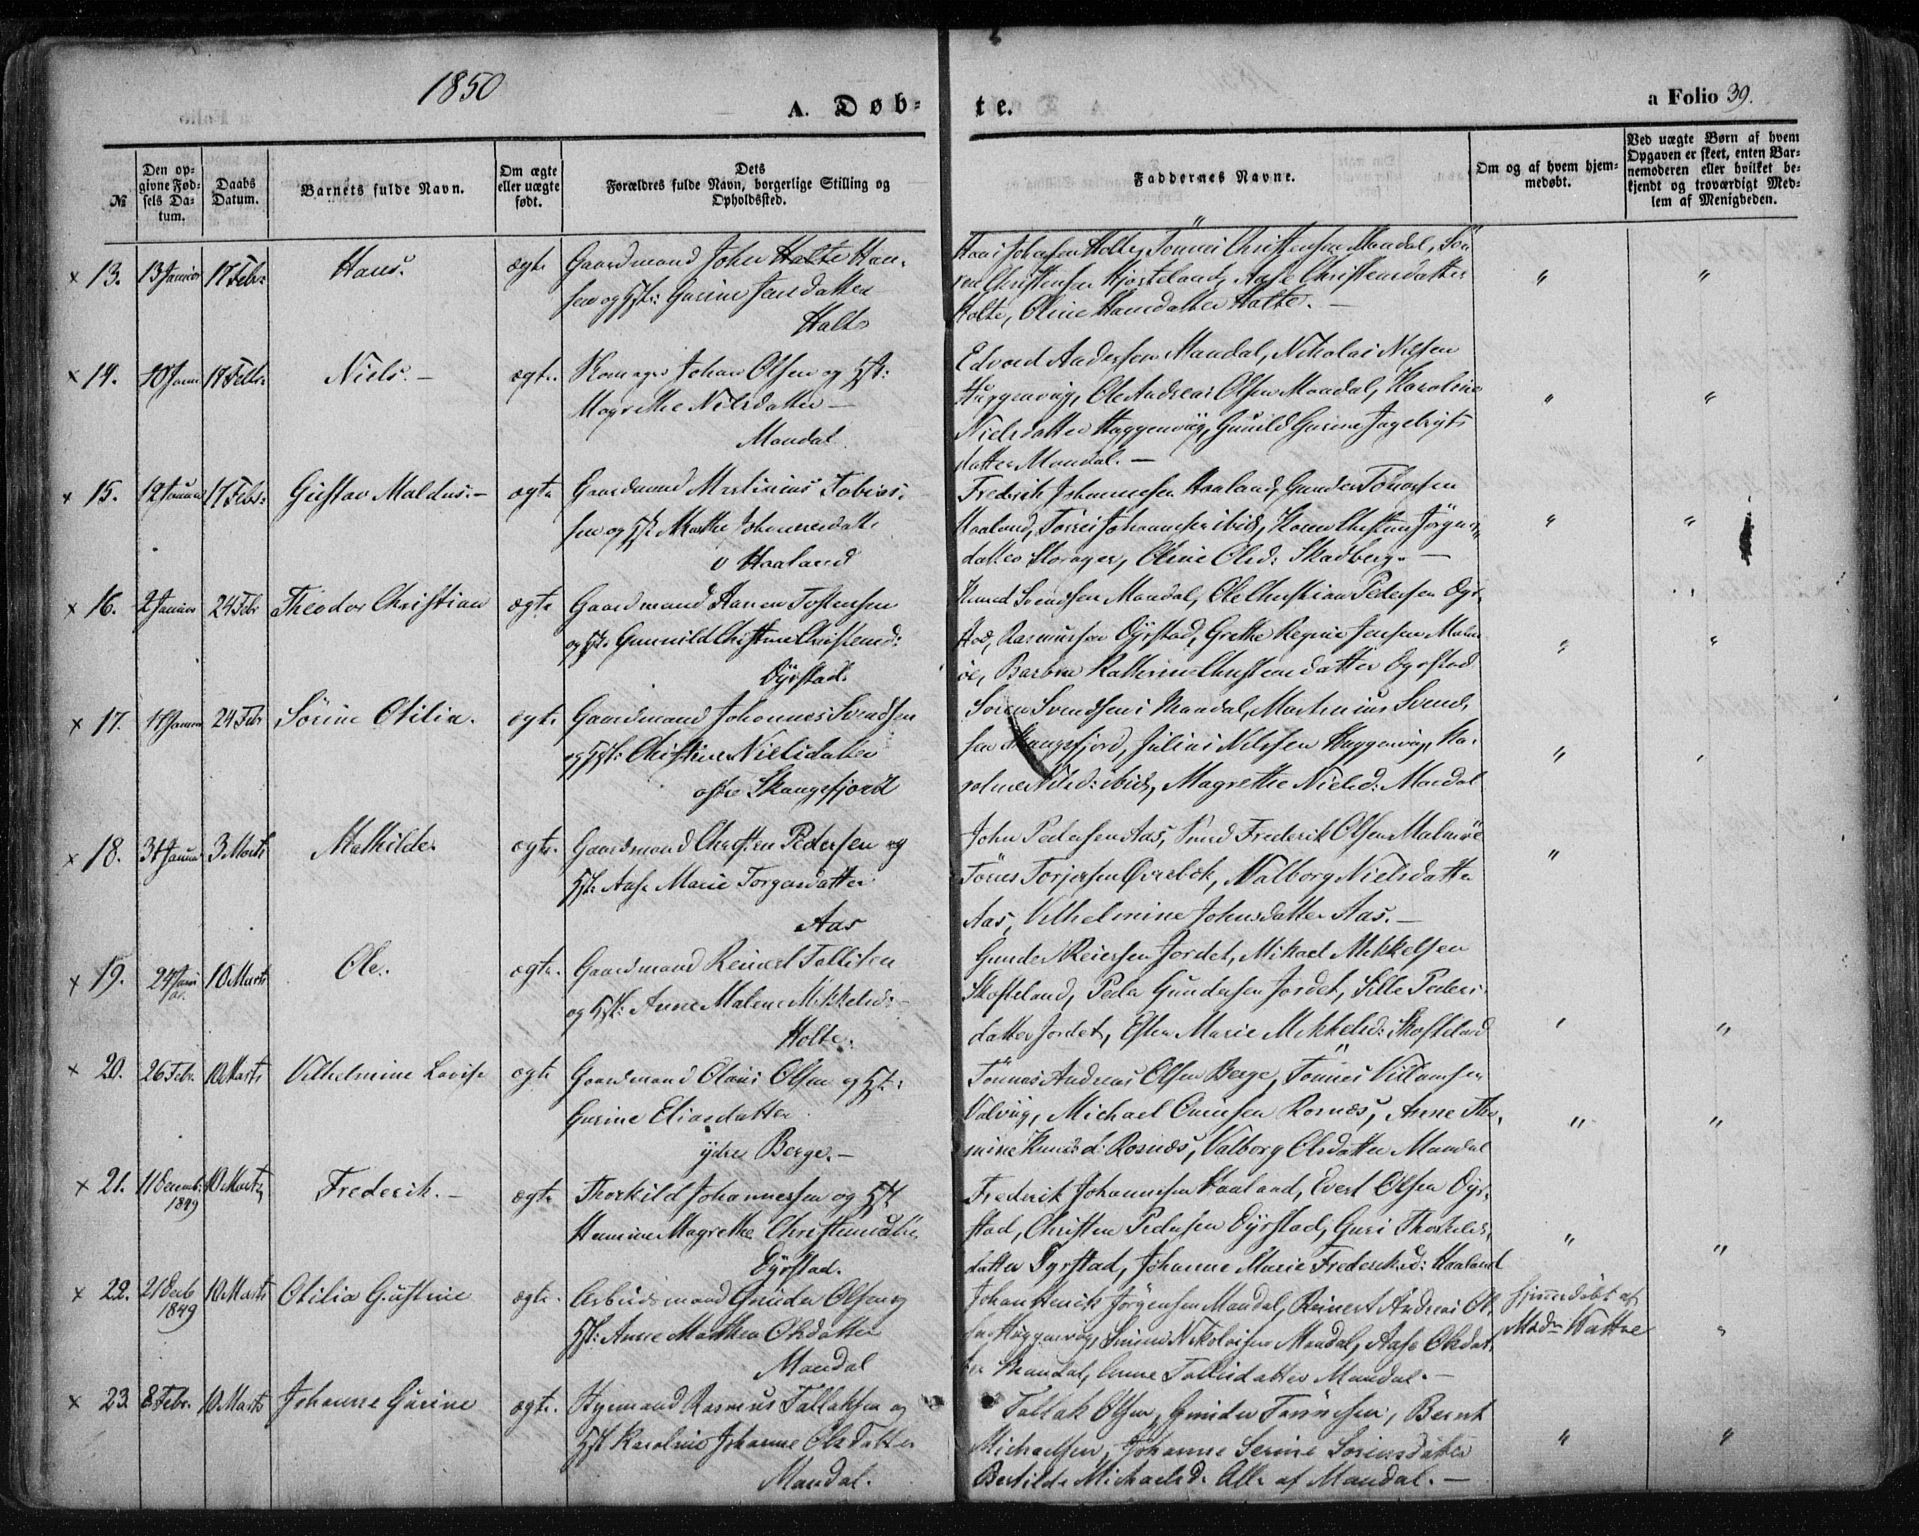 1850
A. Døb-
te.
a Folio 39.
№
Den op-
givne Fød-
sels Da-
tum.
Daabs
Datum.
Barnets fulde Navn.
Om ægte
eller uægte
født.
Dets
Forældres fulde Navn, borgerlige Stilling og
Opholdssted.
Faddernes Navne.
Om og af hvem hjem-
medøbt.
Ved uægte Børn af hvem
Opgaven er skeet, enten Bar-
nemoderen eller hvilket be-
kjendt og troværdigt Med-
lem af Menigheden.
× 13. 13 Januar 17 Febr: Hans. ægte
Gaardmand John Holte Han-
sen og Hst: Gurine Jensdatter
Holte
Johnsen Holte, Tönnes Christensen Mandal, Sö-
ren Christensen Hjorteland, Aase Christensdatter
Holte, Oline Hansdatter Holte. —
× 14. 10 Janu 17 Febr: Niels. — ægte.
Skomager Johan Olsen og Hst:
Magrethe Nilsdatter —
Mandal.
Edvard Andersen Mandal, Nikolai Nilsen
Haggenvig, Ole Andreas Olsen Mandal, Karoline
Nielsdatter Haggenvig, Gunild Gurine Ingebrigts
datter Mandal. —
× 15. 12 Januar 17 Febr: Gustav Maldus. — ægte
Gaardmand Martinius Tobias-
sen og Hst Marthe Johannesdatte
Haaland
Frederik Johannesen Haaland, Gunder Tönnesen
Haaland, Johannesen ibid, Jörgens-
datter Storager, Oline Olsd: Skadberg. —
× 16. 2 Januar 24 Febr Theodor Christian ægte
Gaardmand Hanen Tostensen
og Hst. Gunnild Christine Christensd:
Dÿrstad.
Knud Svendsen Mandal, Ole Christian Pedersen Dyr-
stad, Rasmussen Dÿrstad, Grethe Regine Jensen Malm-
öe, Barbra Katherine Christensdatter Dyrstad
× 17. 17 Janua 24 Febr Sörine Otilia. ægte
Gaardmand Johannes Svendsen
og Hst: Christine Nielsdatter
östre Skaugsfjord
Sören Svendsen i Mandal, Martinius Svend-
sen Skaugsfjord, Julius Nilssen Haggenvig, Ka-
roline Nilsd: ibid, Magrethe Nielsd: Mandal
× 18. 31 Januar 3 Marts Mathilde. ægte
Gaardmand Christen Pedersen og
Hst. Aase Marie Torgersdatter.
Aas
John Pedersen Aas, Frederik Olsen Malmöe
Tönnes Torjersen Øvrebök, Valborg Nielsdatter
Aas, Vilhelmine Johnsdatter Aas. —
× 19. 24 Janu
ar. 10 Marts Ole. ægte.
Gaardmand Reinert Tallisen
og Hst: Anne Malene Mikkelsd: —
Holte.
Gunder Reiersen Jordet, Mikael Mikkelsen
Skofteland, Peder Gundersen Jordet, Sille Peders-
datter Jordet, Marie Mikkelsd: Skofteland
× 20. 26 Febr. 10 Marts Vilhelmine Lovise ægte
Gaardmand Olaus Olsen og Hst:
Gurine Eliasdatter
ydre Berge. —
Tönnes Andreas Olsen Berge, Tönnes Villumsen
Valvig, Michael Rosnæs, Anne Tho-
mine Knudsd: Rosnæs, Valborg Olsdatter Mandal
× 21. 11 Decemb:
1849 10 Marts Frederik. — ægte
Thorkild Johannessen og Hst
Hanine Magrethe Christensdatter
Dÿrstad.
Frederik Johannesen Haaland, Evert Olsen Dyr-
stad, Christen Pedersen Dyrstad, Guri Thorkilds-
datter Dyrstad, Johanne Marie Frederiksd: Haaland
× 22. 21 Decb
1849 10 Marts Otilia Gustine ægte.
Arbeidsmand Gunder Olsen og
Hst: Anne Marthea Olsdatter
Mandal
Johan Henrik Jörgensen Mandal, Reinert Andreas Ol-
sen Haggenvig, Nikolaisen Mandal, Aase Olsdat-
ter Mandal, Anne Tallisdatter Mandal. —
Hjemmedöbt af
Madm Wattne
× 23. 8 Febr. 10 Marts Johanne Gurine ægte.
Hyremand Rasmus Tallaksen og
Hst Karoline Johanne Olsdatter
Mandal.
Tallak Olsen, Gunder Tönnesen, Bernt
Michaelsen, Johanne Serine Sörensdatter
Berthilde Michaelsd: Alle af Mandal. —